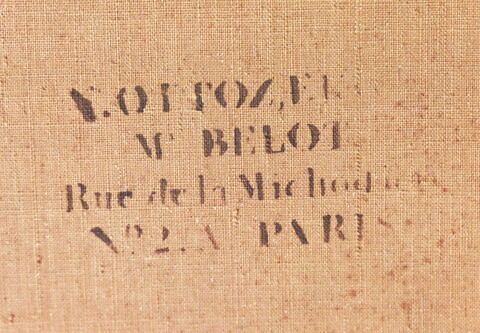 V. OTTOZ, EL
Mᵈ BELOT
Rue de la Michodière
Nº 2. A PARIS